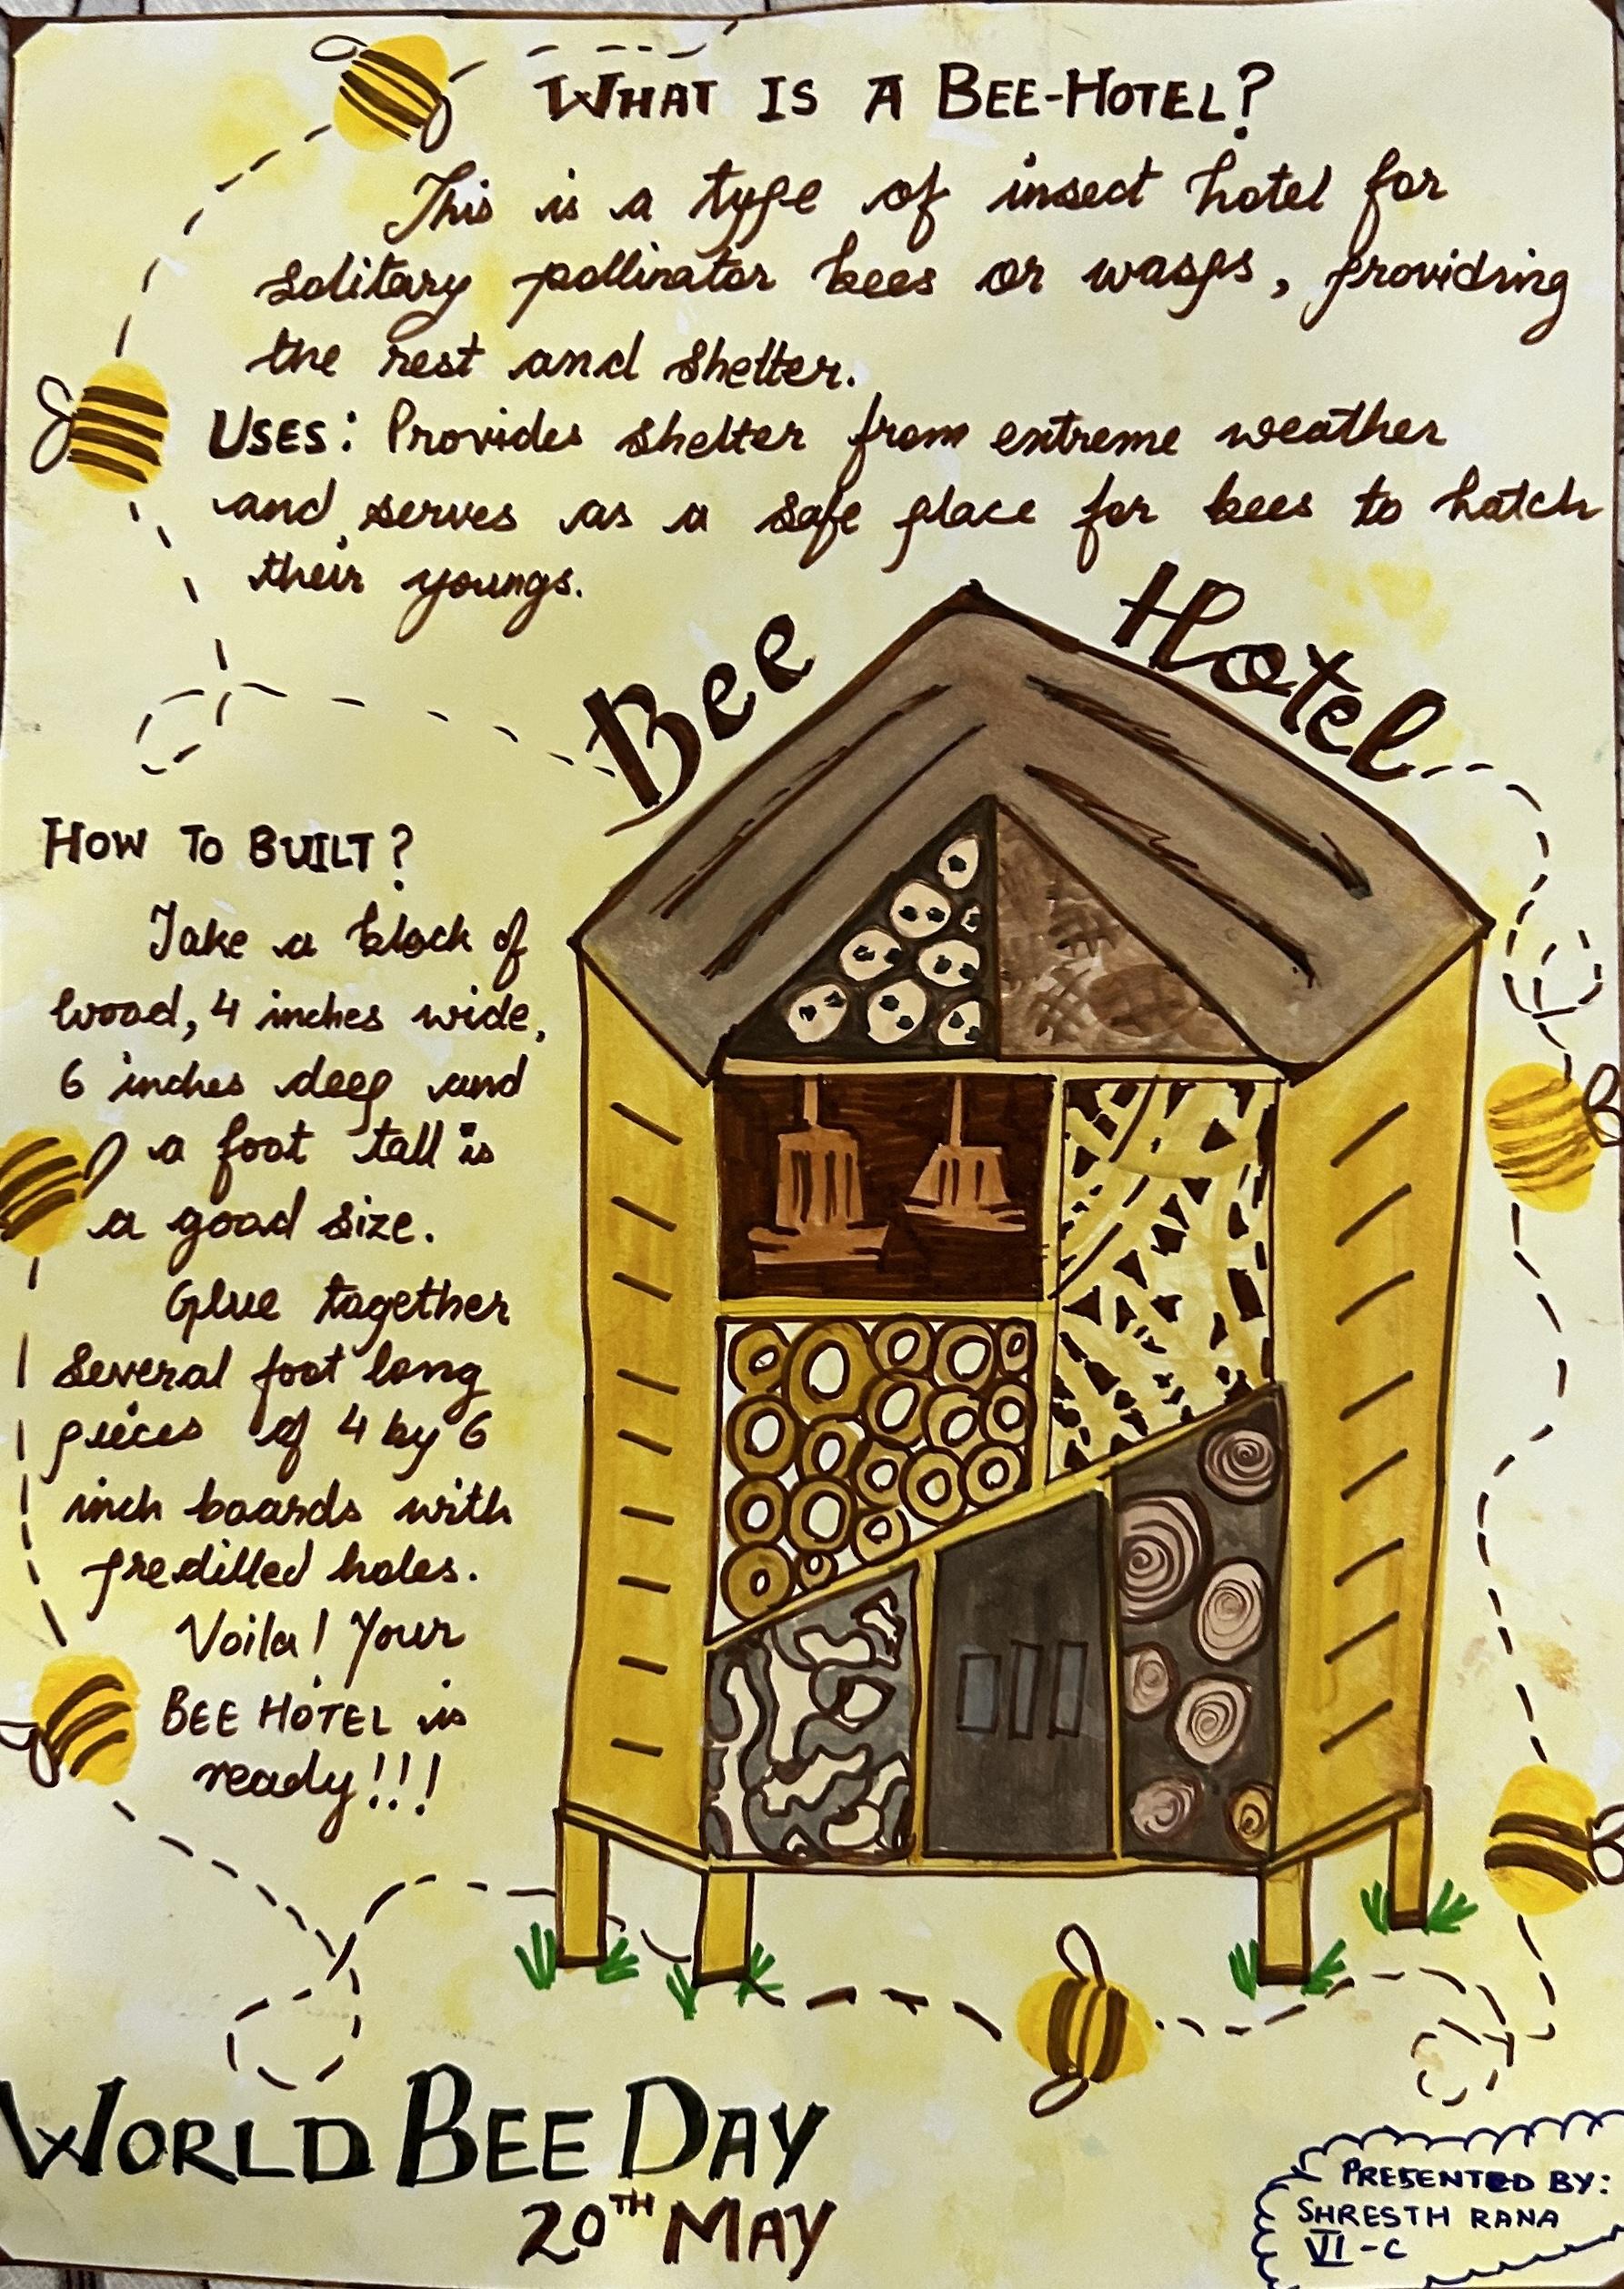 WHAT IS A BEE-HOTEL?
This is a type of insect hotel for
solitary pollinator bees or wasps, providing
the rest and shelter.
USES: Provides shelter from extreme weather
and serves as a safe place for bees to hatch
their youngs.
Bee Hotel
HOW TO BUILT?
Take a block of
wood, 4 inches wide,
6 inches deep and
a foot tall is
a good size.
Glue together
several foot long
pieces of 4 by 6
inch boards with
predilled holes.
Voila! Your
BEE HOTEL is
ready!!!
WORLD BEE DAY
20TH MAY
PRESENTED BY:
SHRESTH RANA
VI-C